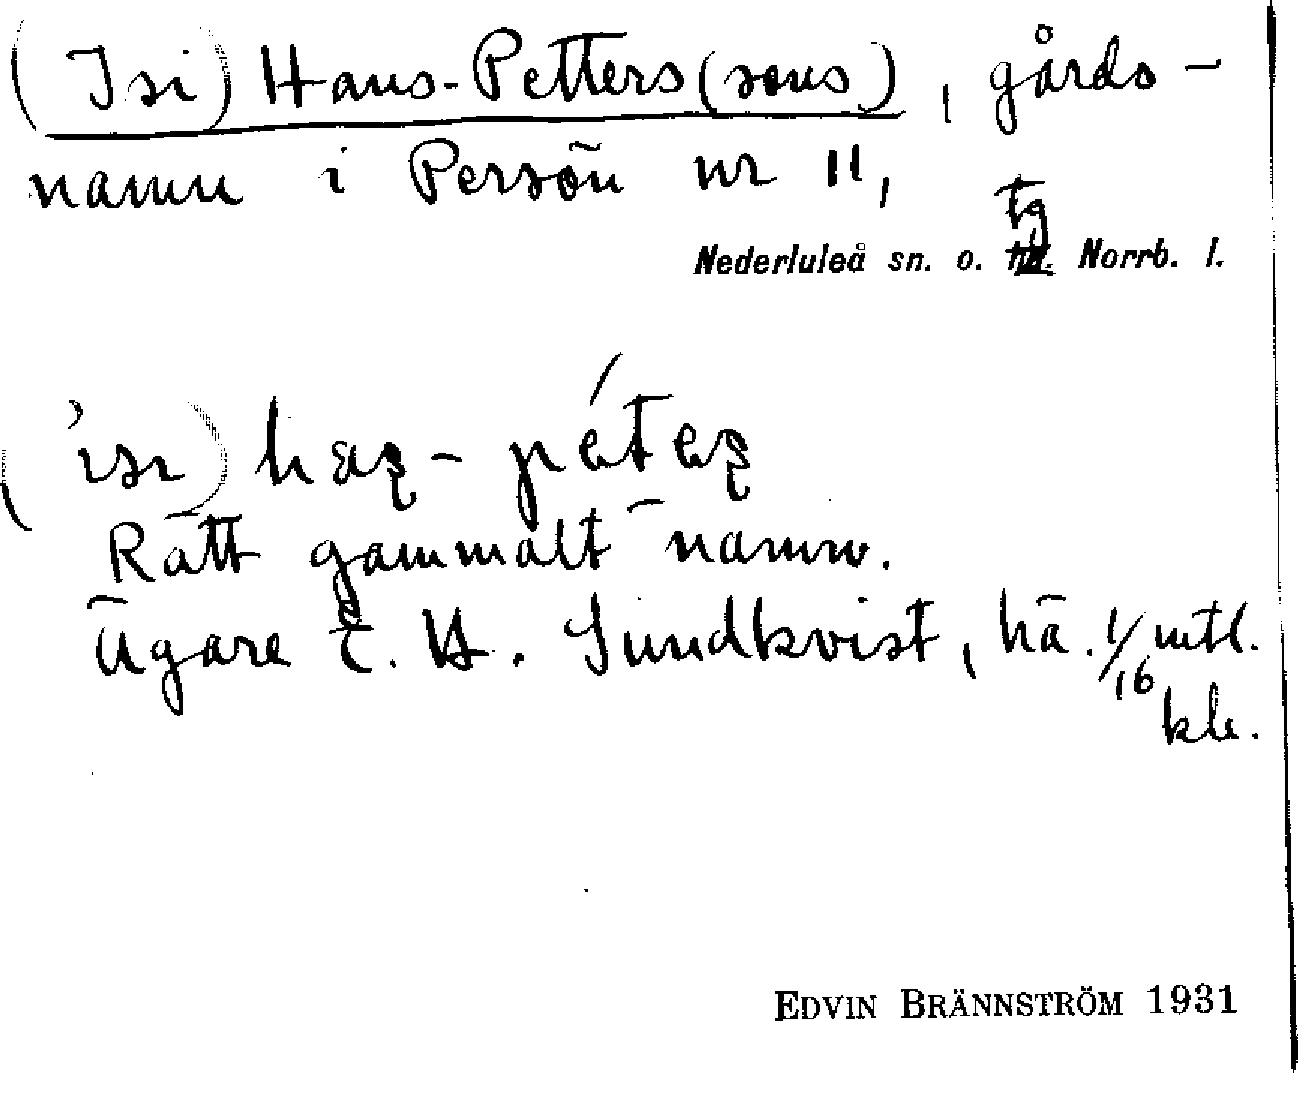 (Isi) Hans-Petters(sons), gårds-
namn i Persön nr 11,
tg
Nederluleå sn. o. Norrb. l.
Rätt gammalt namn.
Ägare E. H. Sundkvist, hä. 1/16 mtl.
kr.
EDVIN BRÄNNSTRÖM 1931